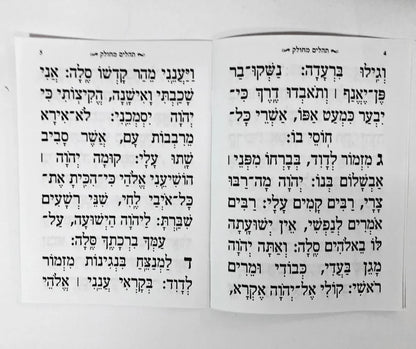 תהלים מחולק
4
וְגִילוּ בִּרְעָדָה: נַשְּׁקוּ־בַר
פֶּן־יֶאֱנַף ׀ וְתֹאבְדוּ דֶרֶךְ כִּי־
יִבְעַר כִּמְעַט אַפּוֹ, אַשְׁרֵי כָּל־
חוֹסֵי בוֹ:
ג מִזְמוֹר לְדָוִד, בְּבָרְחוֹ מִפְּנֵי ׀
אַבְשָׁלוֹם בְּנוֹ: יְהֹוָה מָה־רַבּוּ
צָרָי, רַבִּים קָמִים עָלָי: רַבִּים
אֹמְרִים לְנַפְשִׁי, אֵין יְשׁוּעָתָה
לּוֹ בֵאלֹהִים סֶלָה: וְאַתָּה יְהֹוָה
מָגֵן בַּעֲדִי, כְּבוֹדִי וּמֵרִים
רֹאשִׁי: קוֹלִי אֶל־יְהֹוָה אֶקְרָא,
תהלים מחולק
5
וַיַּעֲנֵנִי מֵהַר קָדְשׁוֹ סֶלָה: אֲנִי
שָׁכַבְתִּי וָאִישָׁנָה, הֱקִיצוֹתִי כִּי
יְהֹוָה יִסְמְכֵנִי: לֹא־אִירָא
מֵרִבְבוֹת עָם, אֲשֶׁר סָבִיב
שָׁתוּ עָלָי: קוּמָה יְהֹוָה ׀
הוֹשִׁיעֵנִי אֱלֹהַי כִּי־הִכִּיתָ אֶת־
כָּל־אֹיְבַי לֶחִי, שִׁנֵּי רְשָׁעִים
שִׁבַּרְתָּ: לַיהֹוָה הַיְשׁוּעָה, עַל־
עַמְּךָ בִרְכָתֶךָ סֶּלָה:
ד לַמְנַצֵּחַ בִּנְגִינוֹת מִזְמוֹר
לְדָוִד: בְּקָרְאִי עֲנֵנִי ׀ אֱלֹהֵי